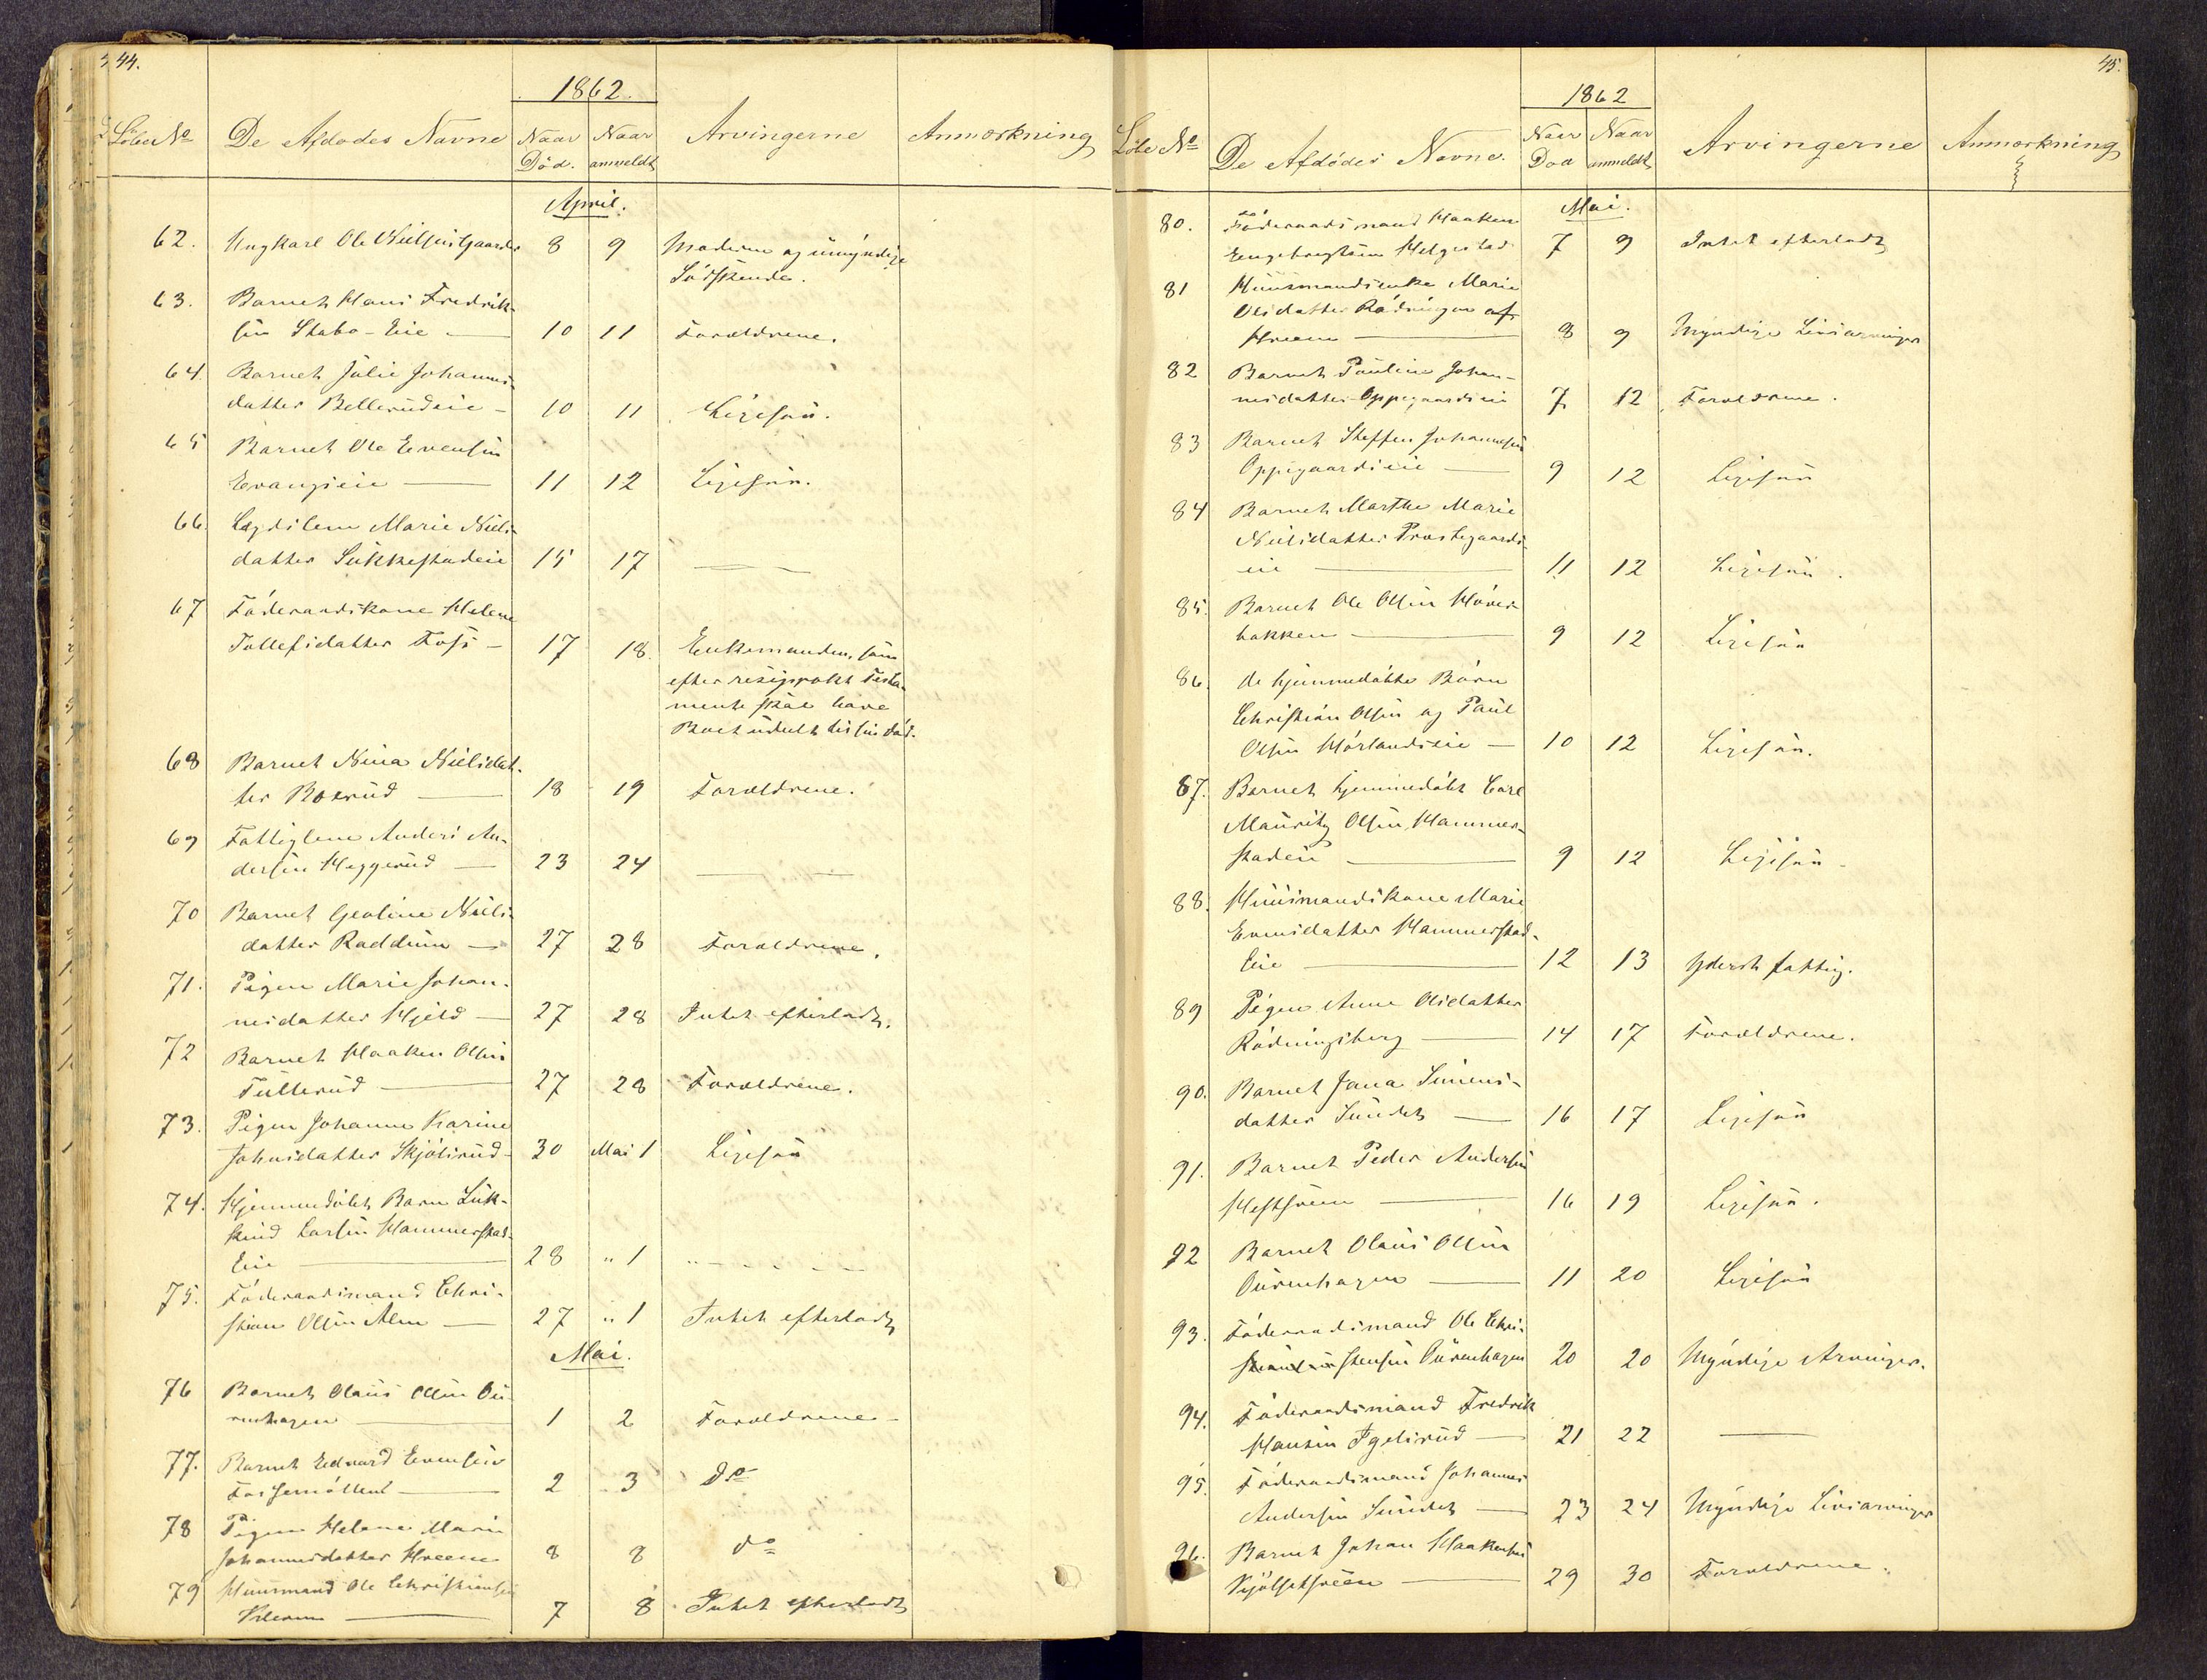 44.
1862.
Löbe No
De Afdødes Navne
Naar Död.
Naar anmeldt
Arvingerne
Anmærkning
April.
62. Ungkarl Ole Nielsen Gaarder 8 9 Moderen og umyndige
Södskende.
63. Barnet Hans Fredrik-
sen Stabo-Eie — 10 11 Forældrene.
64. Barnet Julie Johannes-
datter Bellerudeie — 10 11 Ligesaa.
65 Barnet Ole Evensen
Evangseie — 11 12 Ligesaa.
66. Lægdslem Marie Niels-
datter Sukkestadeie 15 17 —
67 Föderaadskone Helene
Tollefsdatter Foss — 17 18. Enkemanden, som
efter resiprokt Testa-
mente skal have
Boet udeelt til sin död.
68 Barnet Nina Nielsdat-
ter Boxrud — 18 19 Forældrene.
69 Fattiglem Anders An-
dersen Heggerud — 23 24 —
70 Barnet Geoline Niels-
datter Raddum — 27 28 Forældrene.
71. Pigen Marie Johan-
nesdatter Hjeld — 27 28 Intet efterladt.
72 Barnet Haaken Olsen
Tullerud — 27 28 Forældrene.
73. Pigen Johanne Karine
Johnsdatter Skjölsrud — 30 Mai 1 Ligesaa
74. Hjemmedöbt Barn
Larsen Hammerstad-
Eie — 28 " 1 " — — —
75. Föderaadsmand Chri-
stian Olsen Alm — 27 " 1 Intet efterladt
Mai.
76 Barnet Olaus Olsen Öu-
renhagen — 1 2 Forældrene
77. Barnet Edvard Evensen
— 2 3 do
78 Pigen Helene Marie
Johannesdatter Hveem 8 8 do
79 Huusmand Ole Christiansen
— 7 8 Intet efterladt
45.
1862
Löbe No
De Afdödes Navne.
Naar Död
Naar anmeldt
Arvingerne
Anmærkning
Mai.
80. Föderaadsmand Haaken
Engebregtsen Helgestad 7 9 Intet efterladt
81 Huusmandsenke Marie
Olsdatter Rödningen af
Hveem — 8 9 Myndige Livsarvinger
82 Barnet Pauline Johan-
nesdatter Oppegaardseie 7 12 Forældrene.
83 Barnet Steffen Johannesen
Oppegaardseie — 9 12 Ligesaa
84 Barnet Marthe Marie
Nielsdatter Præstegaards-
eie — 11 12 Ligesaa.
85. Barnet Ole Olsen Höver-
bakken — 9 12 Ligesaa
86. de hjemmedöbte Börn
Christian Olsen og Paul
Olsen Hörlandseie — 10 12 Ligesaa.
87. Barnet hjemmedöbt Carl
Mauritz Olsen Hammer-
stadeie — 9 12 Ligesaa
88. Huusmandskone Marie
Evensdatter Hammerstad-
Eie — 12 13 yderst fattig.
89 Pigen Anne Olsdatter
Rödningsberg — 14 17 Forældrene.
90. Barnet Jana Simens-
datter Sundet — 16 17 Ligesaa
91. Barnet Peder Andersen
Hestsveen — 16 19 Ligesaa.
92 Barnet Olaus Olsen
Öurenhagen — 11 20 Ligesaa
93. Föderaadsmand Ole Chri-
stensen Öurenhagen 20 20 Myndige Arvinger.
94. Föderaadsmand Fredrik
Hansen Igelsrud — 21 22 —
95. Föderaadsmand Johannes
Andersen Sundet — 23 24 Myndige Livsarvinger
96. Barnet Johan Haakensen
Kjölsetsveen — 29 30 Forældrene.